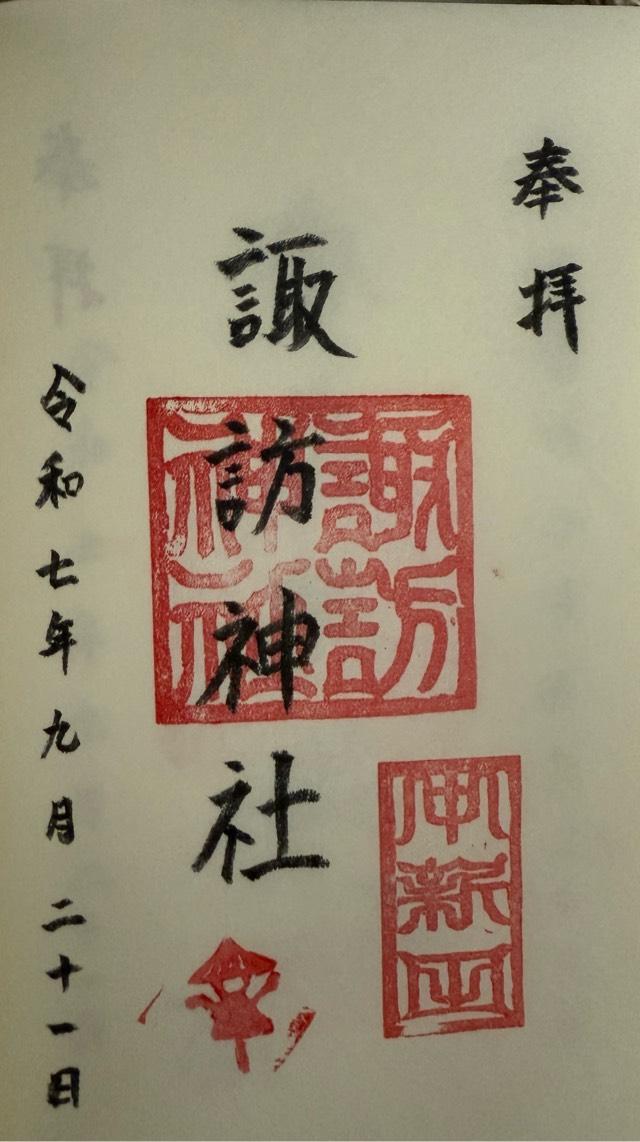 奉拝
諏訪神社
諏訪
神社
令和七年九月二十一日